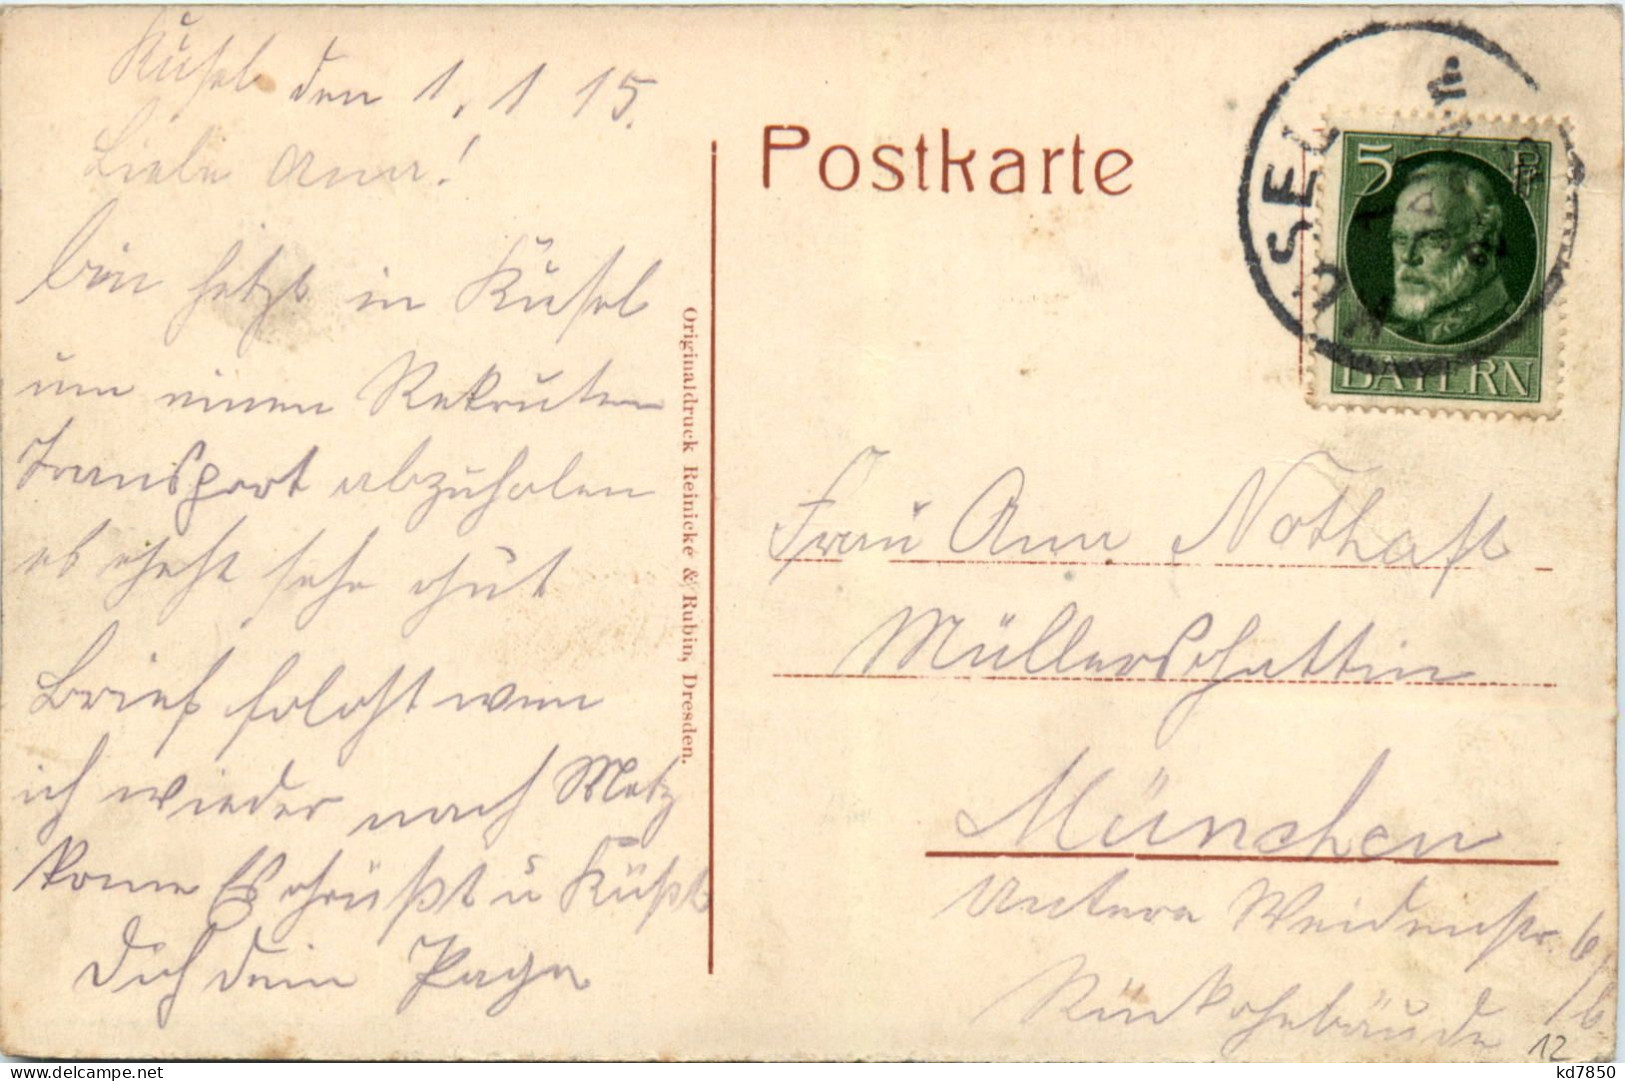 Kusel den 1. 1 15.
Liebe Anna!
bin jetzt in Kusel
um einen Rekruten
Transport abzuholen
es geht sehr gut
Brief folgt wen
ich wieder nach Metz
kome Es grüßt u Küßt
Dich dein
Originaldruck Reinicke & Rubin, Dresden.
Postkarte
KUSEL
5 Pf
BAYERN
Frau Anna Nothaft
Müllersgattin
München
Untere Weidenstr. 6/
Rückgebäude
12
delcampe.net
kd7850